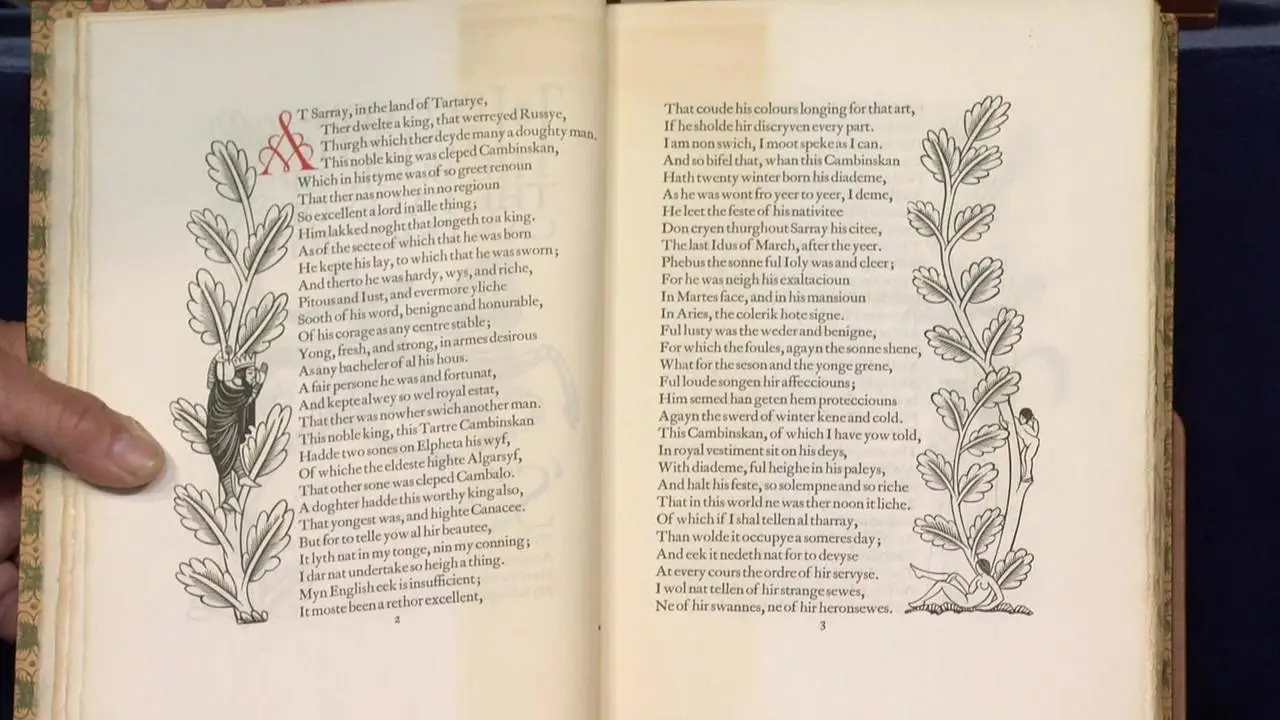 AT Sarray, in the land of Tartarye,
Ther dwelte a king, that werreyed Russye,
Thurgh which ther deyde many a doughty man.
This noble king was cleped Cambinskan,
Which in his tyme was of so greet renoun
That ther nas nowher in no regioun
So excellent a lord in alle thing;
Him lakked noght that longeth to a king.
As of the secte of which that he was born
He kepte his lay, to which that he was sworn;
And therto he was hardy, wys, and riche,
Pitous and Iust, and evermore yliche
Sooth of his word, benigne and honurable,
Of his corage as any centre stable;
Yong, fresh, and strong, in armes desirous
As any bacheler of al his hous.
A fair persone he was and fortunat,
And kepte alwey so wel royal estat,
That ther was nowher swich another man.
This noble king, this Tartre Cambinskan
Hadde two sones on Elpheta his wyf,
Of whiche the eldeste highte Algarsyf,
That other sone was cleped Cambalo.
A doghter hadde this worthy king also,
That yongest was, and highte Canacee.
But for to telle yow al hir beautee,
It lyth nat in my tonge, nin my conning;
I dar nat undertake so heigh a thing.
Myn English eek is insufficient;
It moste been a rethor excellent,
2
That coude his colours longing for that art,
If he sholde hir discryven every part.
I am non swich, I moot speke as I can.
And so bifel that, whan this Cambinskan
Hath twenty winter born his diademe,
As he was wont fro yeer to yeer, I deme,
He leet the feste of his nativitee
Don cryen thurghout Sarray his citee,
The last Idus of March, after the yeer.
Phebus the sonne ful Ioly was and cleer;
For he was neigh his exaltacioun
In Martes face, and in his mansioun
In Aries, the colerik hote signe.
Ful lusty was the weder and benigne,
For which the foules, agayn the sonne shene,
What for the seson and the yonge grene,
Ful loude songen hir affecciouns;
Him semed han geten hem protecciouns
Agayn the swerd of winter kene and cold.
This Cambinskan, of which I have yow told,
In royal vestiment sit on his deys,
With diademe, ful heighe in his paleys,
And halt his feste, so solempne and so riche
That in this world ne was ther noon it liche.
Of which if I shal tellen al tharray,
Than wolde it occupye a someres day;
And eek it nedeth nat for to devyse
At every cours the ordre of hir servyse.
I wol nat tellen of hir strange sewes,
Ne of hir swannes, ne of hir heronsewes.
3